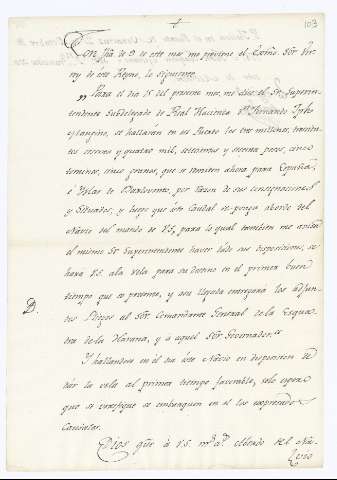 103
Con fha de 9 de este mes me previene el Exmo. Sór Vir-
rey de este Reyno, lo siguiente.
"Para el dia 15 del presente mes, me dice el Sr. Superin-
tendente Subdelegado de Real Hacienda Dn. Fernando Joseph
Mangino, se hallarán en ese Puerto los tres millones, trescien-
tos y quatro mil, setecientos y setenta pesos, cinco
tomines, cinco granos, que se remiten ahora para España,
é Yslas de Barlovento, por razon de sus consignaciones
y Situados; y hasta que este Caudal se ponga abordo del
Navio del mando de V.S., para lo qual tambien me avisa
el mismo Sr. Superintendente haver dado sus disposiciones, se
hará V.S. á la vela para su destino en el primer buen
tiempo que se presente, y á su llegada entregará los adjun-
tos Pliegos al Sór Comandante General de la Esqua-
D.
dra de la Havana, y á aquel Sór Governador."
Y hallandose en el dia este Navio en disposicion de
dár la vela al primer tiempo favorable, solo espera
que se verifique se embarquen en el los expresados
Caudales.
Dios gûe á V.S. ms. as. abordo del Na-
vio